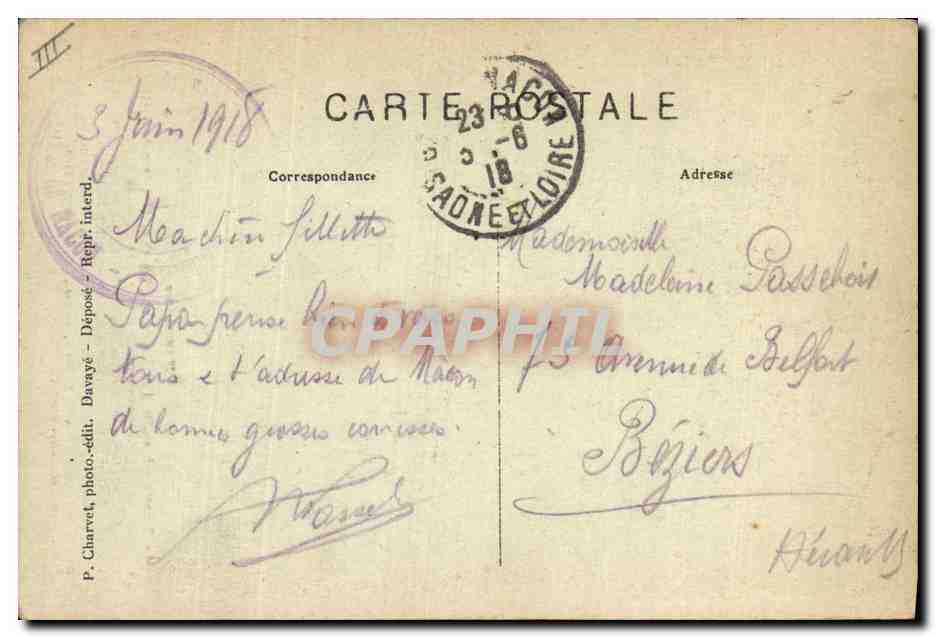 III
CARTE POSTALE
MACON
23
-6
18
SAONE ET LOIRE
3 Juin 1918
Correspondance
Adresse
MACON
Ma chère fillette
Papa pense bien à vous
tous e t'adresse de Mâcon
de bonnes grosses caresses.
Mademoiselle
Madeleine Passebois
75 Avenue de Belfort
Béziers
Hérault
P. Charvet, photo.-édit. Davayé – Déposé – Repr. interd.
CPAPHIL